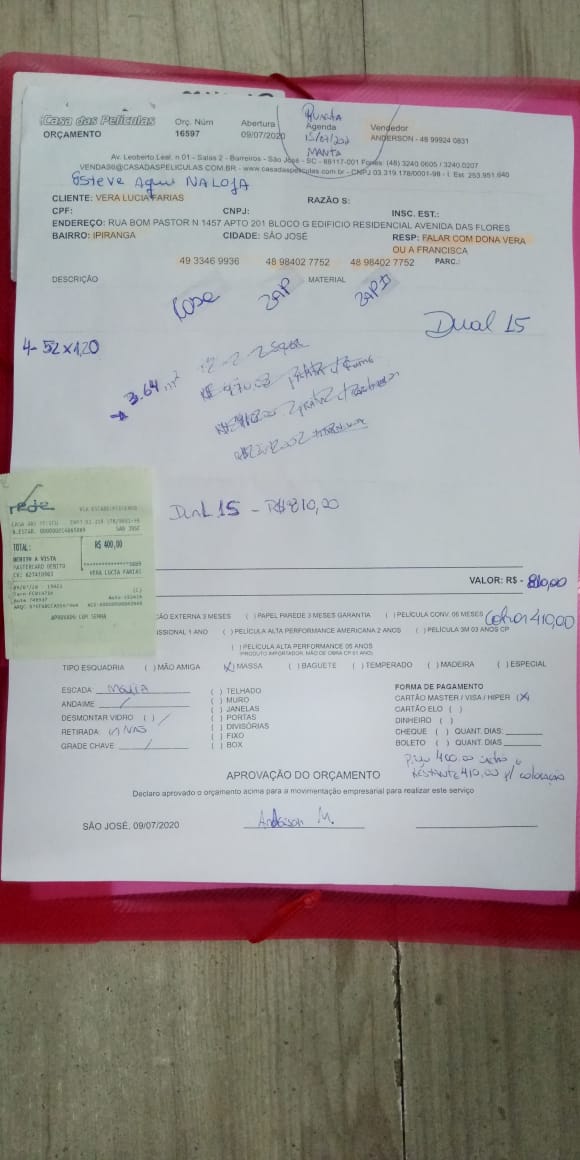 Casa das Películas
ORÇAMENTO
Orç. Núm
16597
Abertura
09/07/2020
QUARTA
Agenda
15/07/202
MANTA
Vendedor
ANDERSON - 48 99924 0831
Av. Leoberto Leal, n 01 - Salas 2 - Barreiros - São José - SC - 88117-001 Fones (48) 3240 0605 / 3240 0207
VENDAS9@CASADASPELICULAS.COM.BR - www.casadaspeliculas.com.br - CNPJ 03.319.178/0001-98 - I. Est 253.951.640
Esteve Aqui NA LOJA
CLIENTE: VERA LUCIA FARIAS RAZÃO S:
CPF: CNPJ: INSC. EST.:
ENDEREÇO: RUA BOM PASTOR N 1457 APTO 201 BLOCO G EDIFICIO RESIDENCIAL AVENIDA DAS FLORES
BAIRRO: IPIRANGA CIDADE: SÃO JOSÉ RESP: FALAR COM DONA VERA
OU A FRANCISCA
49 3346 9936 48 98402 7752 48 98402 7752 PARC.:
DESCRIÇÃO MATERIAL
ZAP
Dual 15
4- 52 x 1,20
3.64 m²
DUAL 15 - R$ 810,00
rede
VIA ESTABELECIMENTO
SAO JOSE
TOTAL: R$ 400,00
DEBITO A VISTA
MASTERCARD DEBITO
VERA LUCIA FARIAS
APROVADO COM SENHA
VALOR: R$ - 810,00
ÇÃO EXTERNA 3 MESES ( ) PAPEL PAREDE 3 MESES GARANTIA ( ) PELÍCULA CONV. 06 MESES
Cobrar 410,00
ISSIONAL 1 ANO ( ) PELÍCULA ALTA PERFORMANCE AMERICANA 2 ANOS ( ) PELÍCULA 3M 03 ANOS CP
( ) PELÍCULA ALTA PERFORMANCE 05 ANOS
(PRODUTO IMPORTADOR, MÃO DE OBRA CP 01 ANO)
TIPO ESQUADRIA ( ) MÃO AMIGA (X) MASSA ( ) BAGUETE ( ) TEMPERADO ( ) MADEIRA ( ) ESPECIAL
ESCADA Média
ANDAIME /
DESMONTAR VIDRO ( ) /
RETIRADA
GRADE CHAVE /
( ) TELHADO
( ) MURO
( ) JANELAS
( ) PORTAS
( ) DIVISÓRIAS
( ) FIXO
( ) BOX
FORMA DE PAGAMENTO
CARTÃO MASTER / VISA / HIPER (X)
CARTÃO ELO ( )
DINHEIRO ( )
CHEQUE ( ) QUANT. DIAS:
BOLETO ( ) QUANT. DIAS
Pago 400,00 cartão e
Restante 410,00 p/ colocação
APROVAÇÃO DO ORÇAMENTO
Declaro aprovado o orçamento acima para a movimentação empresarial para realizar este serviço
SÃO JOSÉ, 09/07/2020
Anderson M.